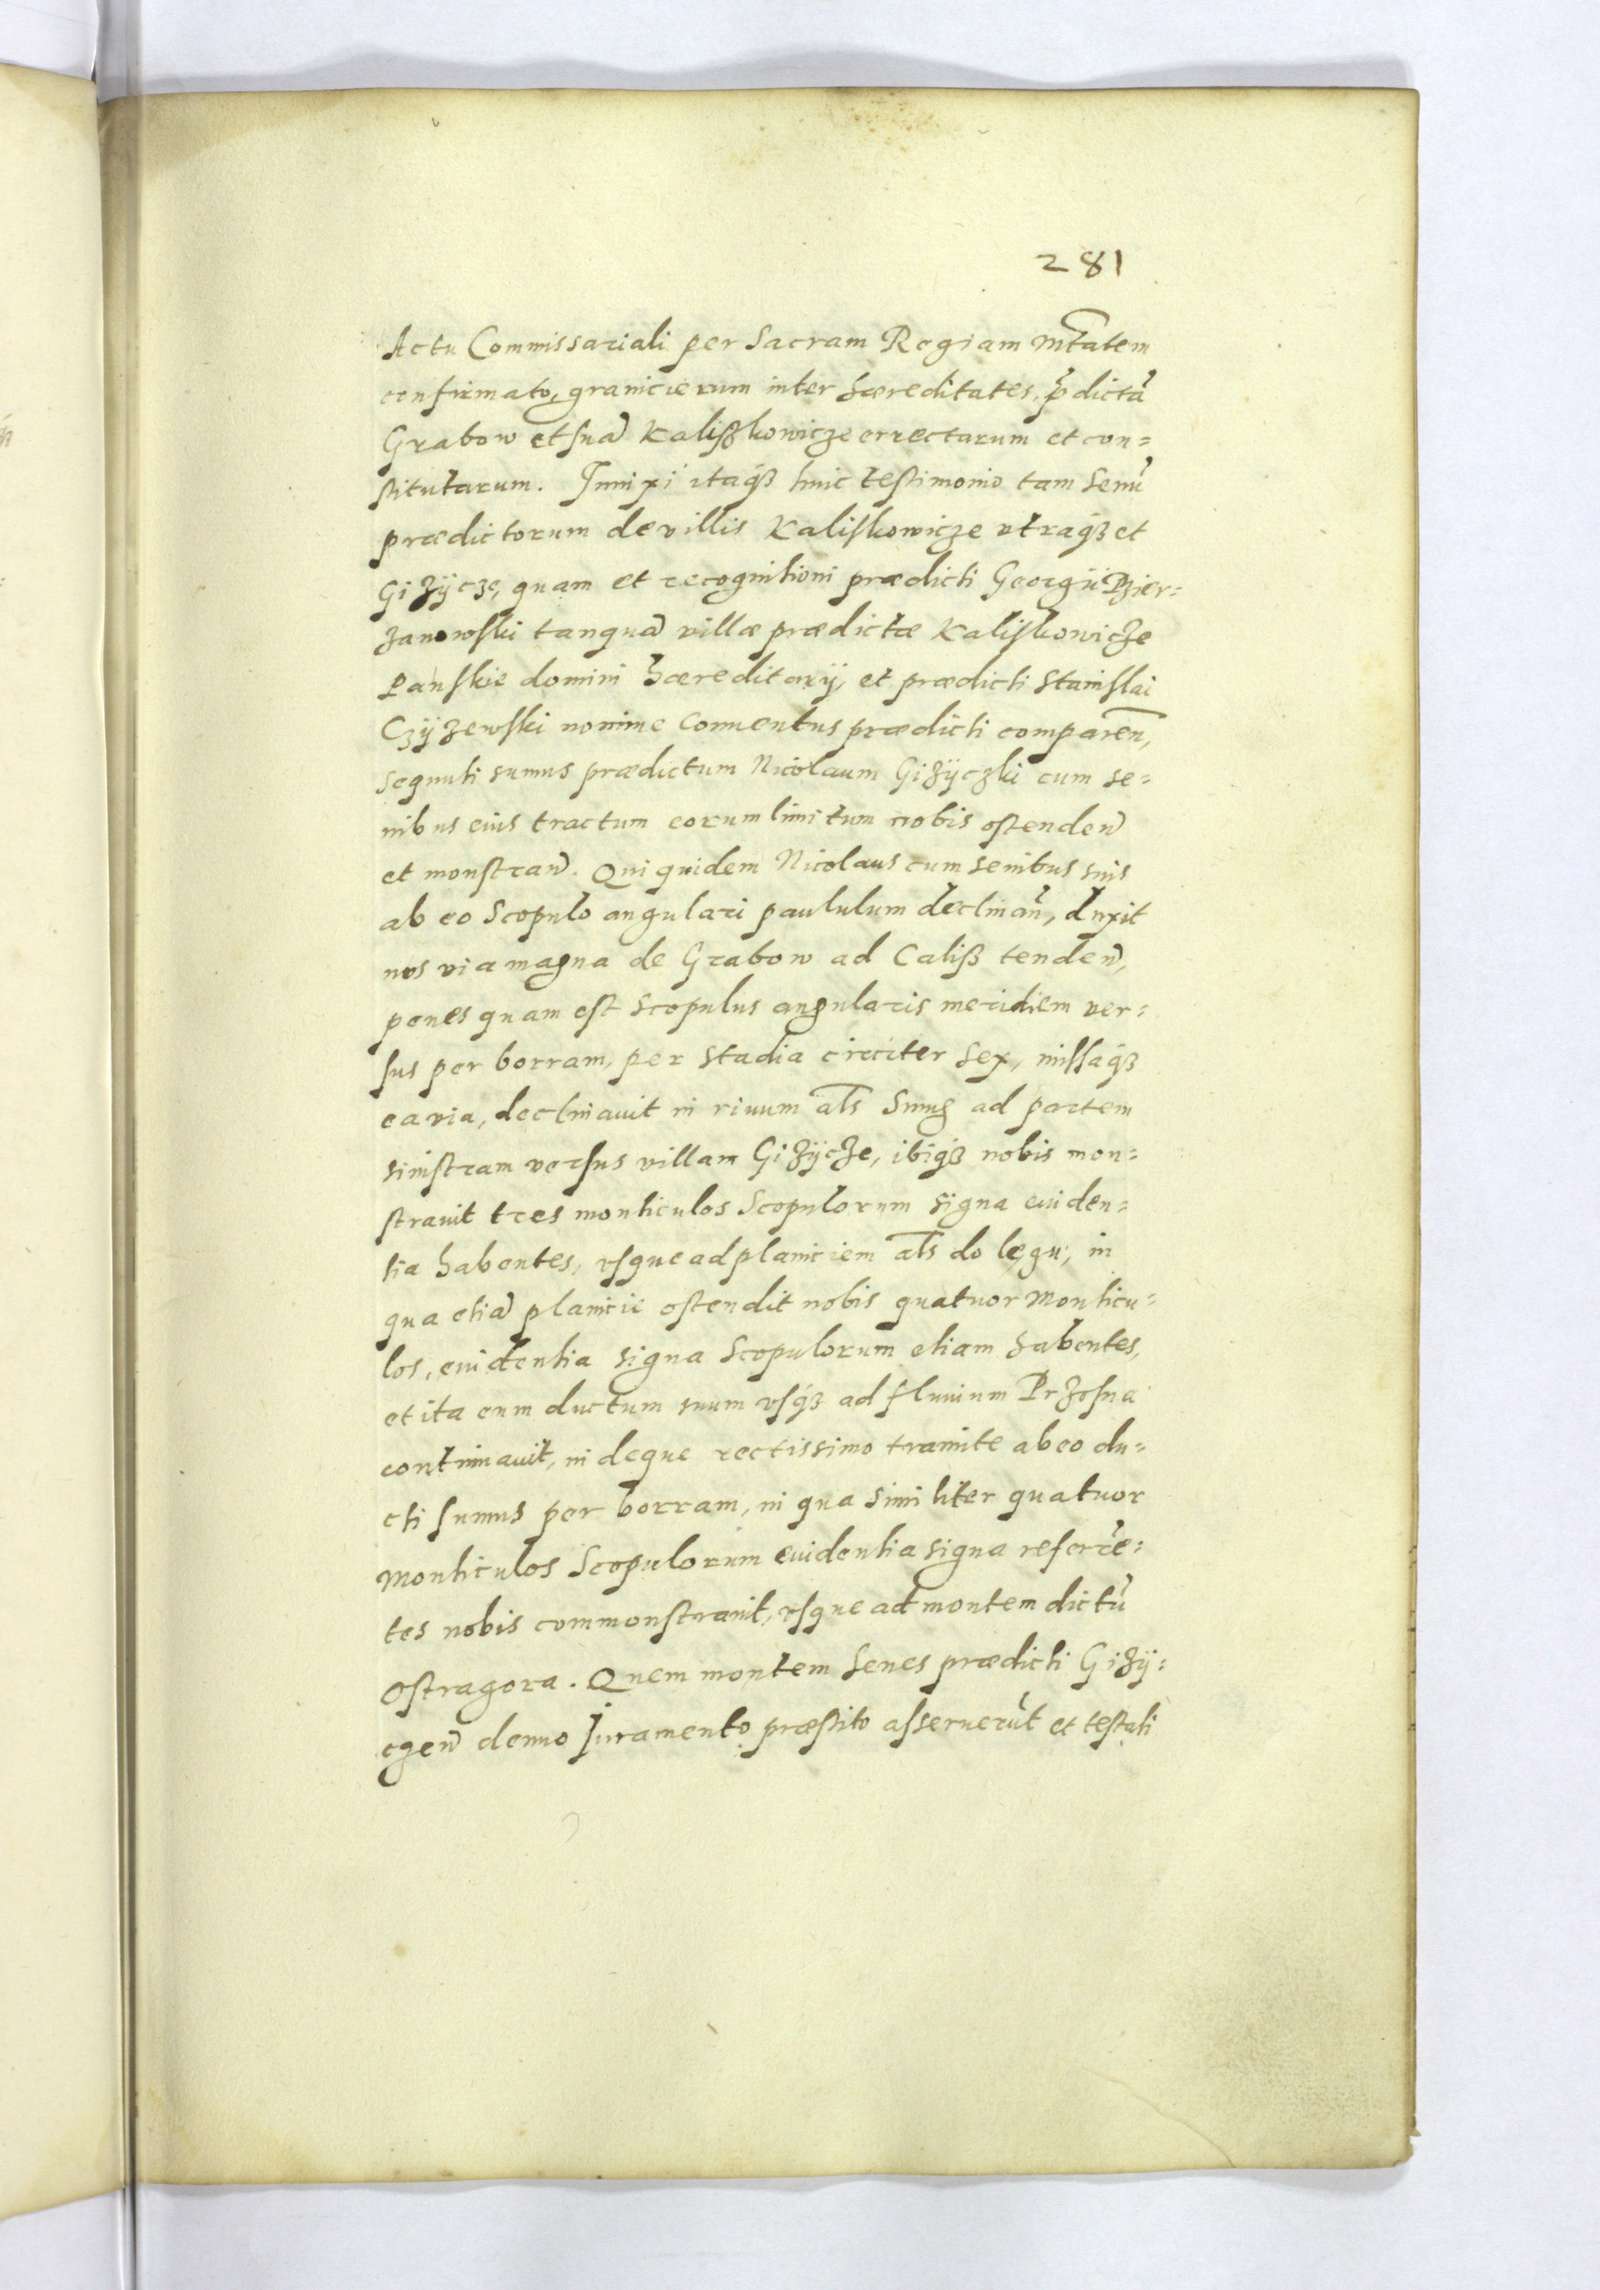 281
Actu Commissariali per Sacram Regiam Mtatem
confirmato, granicierum inter hæreditates p̃dictã
Grabow et suã Kalißkowicze errectarum et con=
stitutarum. Innixi itaq́ꝫ huic testimonio tam Senũ
prædictorum de villis Kaliskowicze vtraq́ꝫ et
Giżÿcze, quam et recognitioni prædicti Georgÿ Pzier=
zanowski tanquã villæ prædictæ Kaliskowicze
Panskie domini hæreditarÿ, et prædicti Stanislai
Czÿżewski nomine Conuentus prædicti comparen̄,
Sequuti sumus prædictum Nicolaum Giżÿczki cum se=
nibus eius tractum eorum limitum nobis ostendeñ
et monstrañ. Qui quidem Nicolaus cum senibus suis
ab eo Scopulo angulari paululum declinañ, duxit
nos via magna de Grabow ad Caliß tendeñ,
penes quam est Scopulus angularis meridiem ver=
sus per borram, per stadia circiter sex, missaq́ꝫ
ea via, declinauit in riuum als̃ Smug ad partem
sinistram versus villam Giżÿcże, ibiq́ꝫ nobis mon=
strauit tres monticulos Scopulorum signa euiden=
tia habentes, vsque ad planiciem als̃ do legu, in
qua etiã planicie ostendit nobis quatuor Monticu=
los, euidentia signa Scopulorum etiam habentes,
et ita eum ductum suum vsq́ꝫ ad fluuium Przosna
continuauit, in deque rectissimo tramite ab eo du=
cti sumus per borram, in qua similiter quatuor
Monticulos Scopulorum euidentia signa referẽ=
tes nobis commonstrauit, vsque ad montem dictũ
Ostragora. Quem montem Senes prædicti Giżÿ=
czeñ denuo Juramento præstito asseruerũt et testati